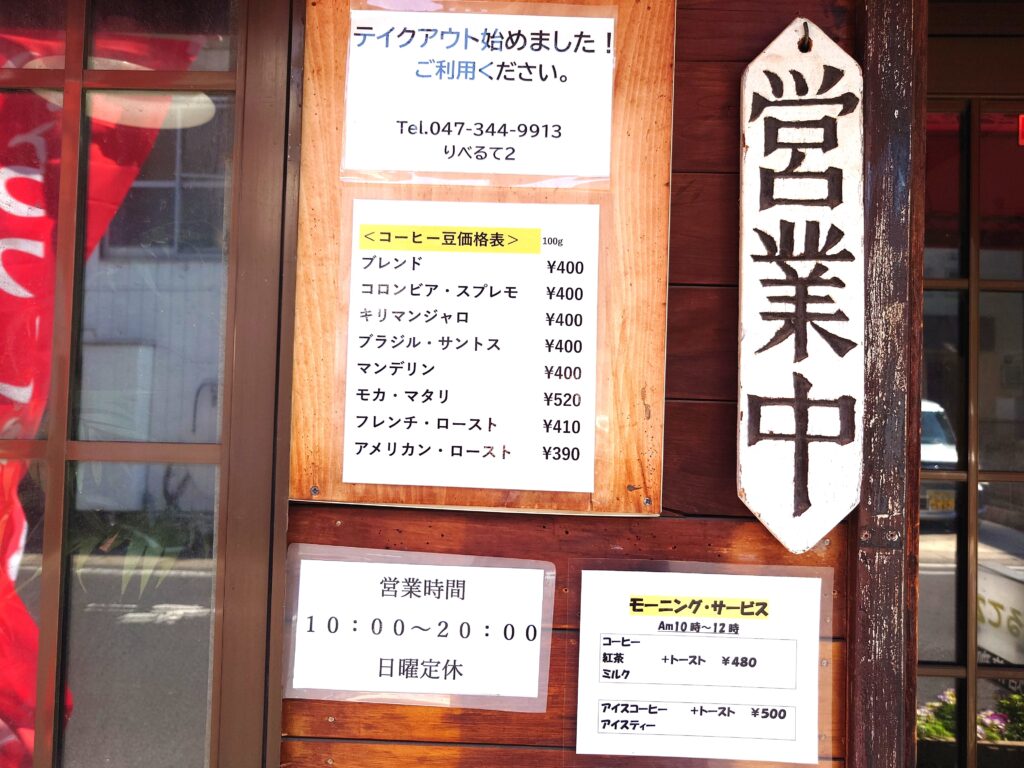 テイクアウト始めました!
ご利用ください。
Tel.047-344-9913
りべるて2
<コーヒー豆価格表> 100g
ブレンド ¥400
コロンビア・スプレモ ¥400
キリマンジャロ ¥400
ブラジル・サントス ¥400
マンデリン ¥400
モカ・マタリ ¥520
フレンチ・ロースト ¥410
アメリカン・ロースト ¥390
営業中
営業時間
10:00〜20:00
日曜定休
モーニング・サービス
Am10時〜12時
コーヒー
紅茶 +トースト ¥480
ミルク
アイスコーヒー +トースト ¥500
アイスティー